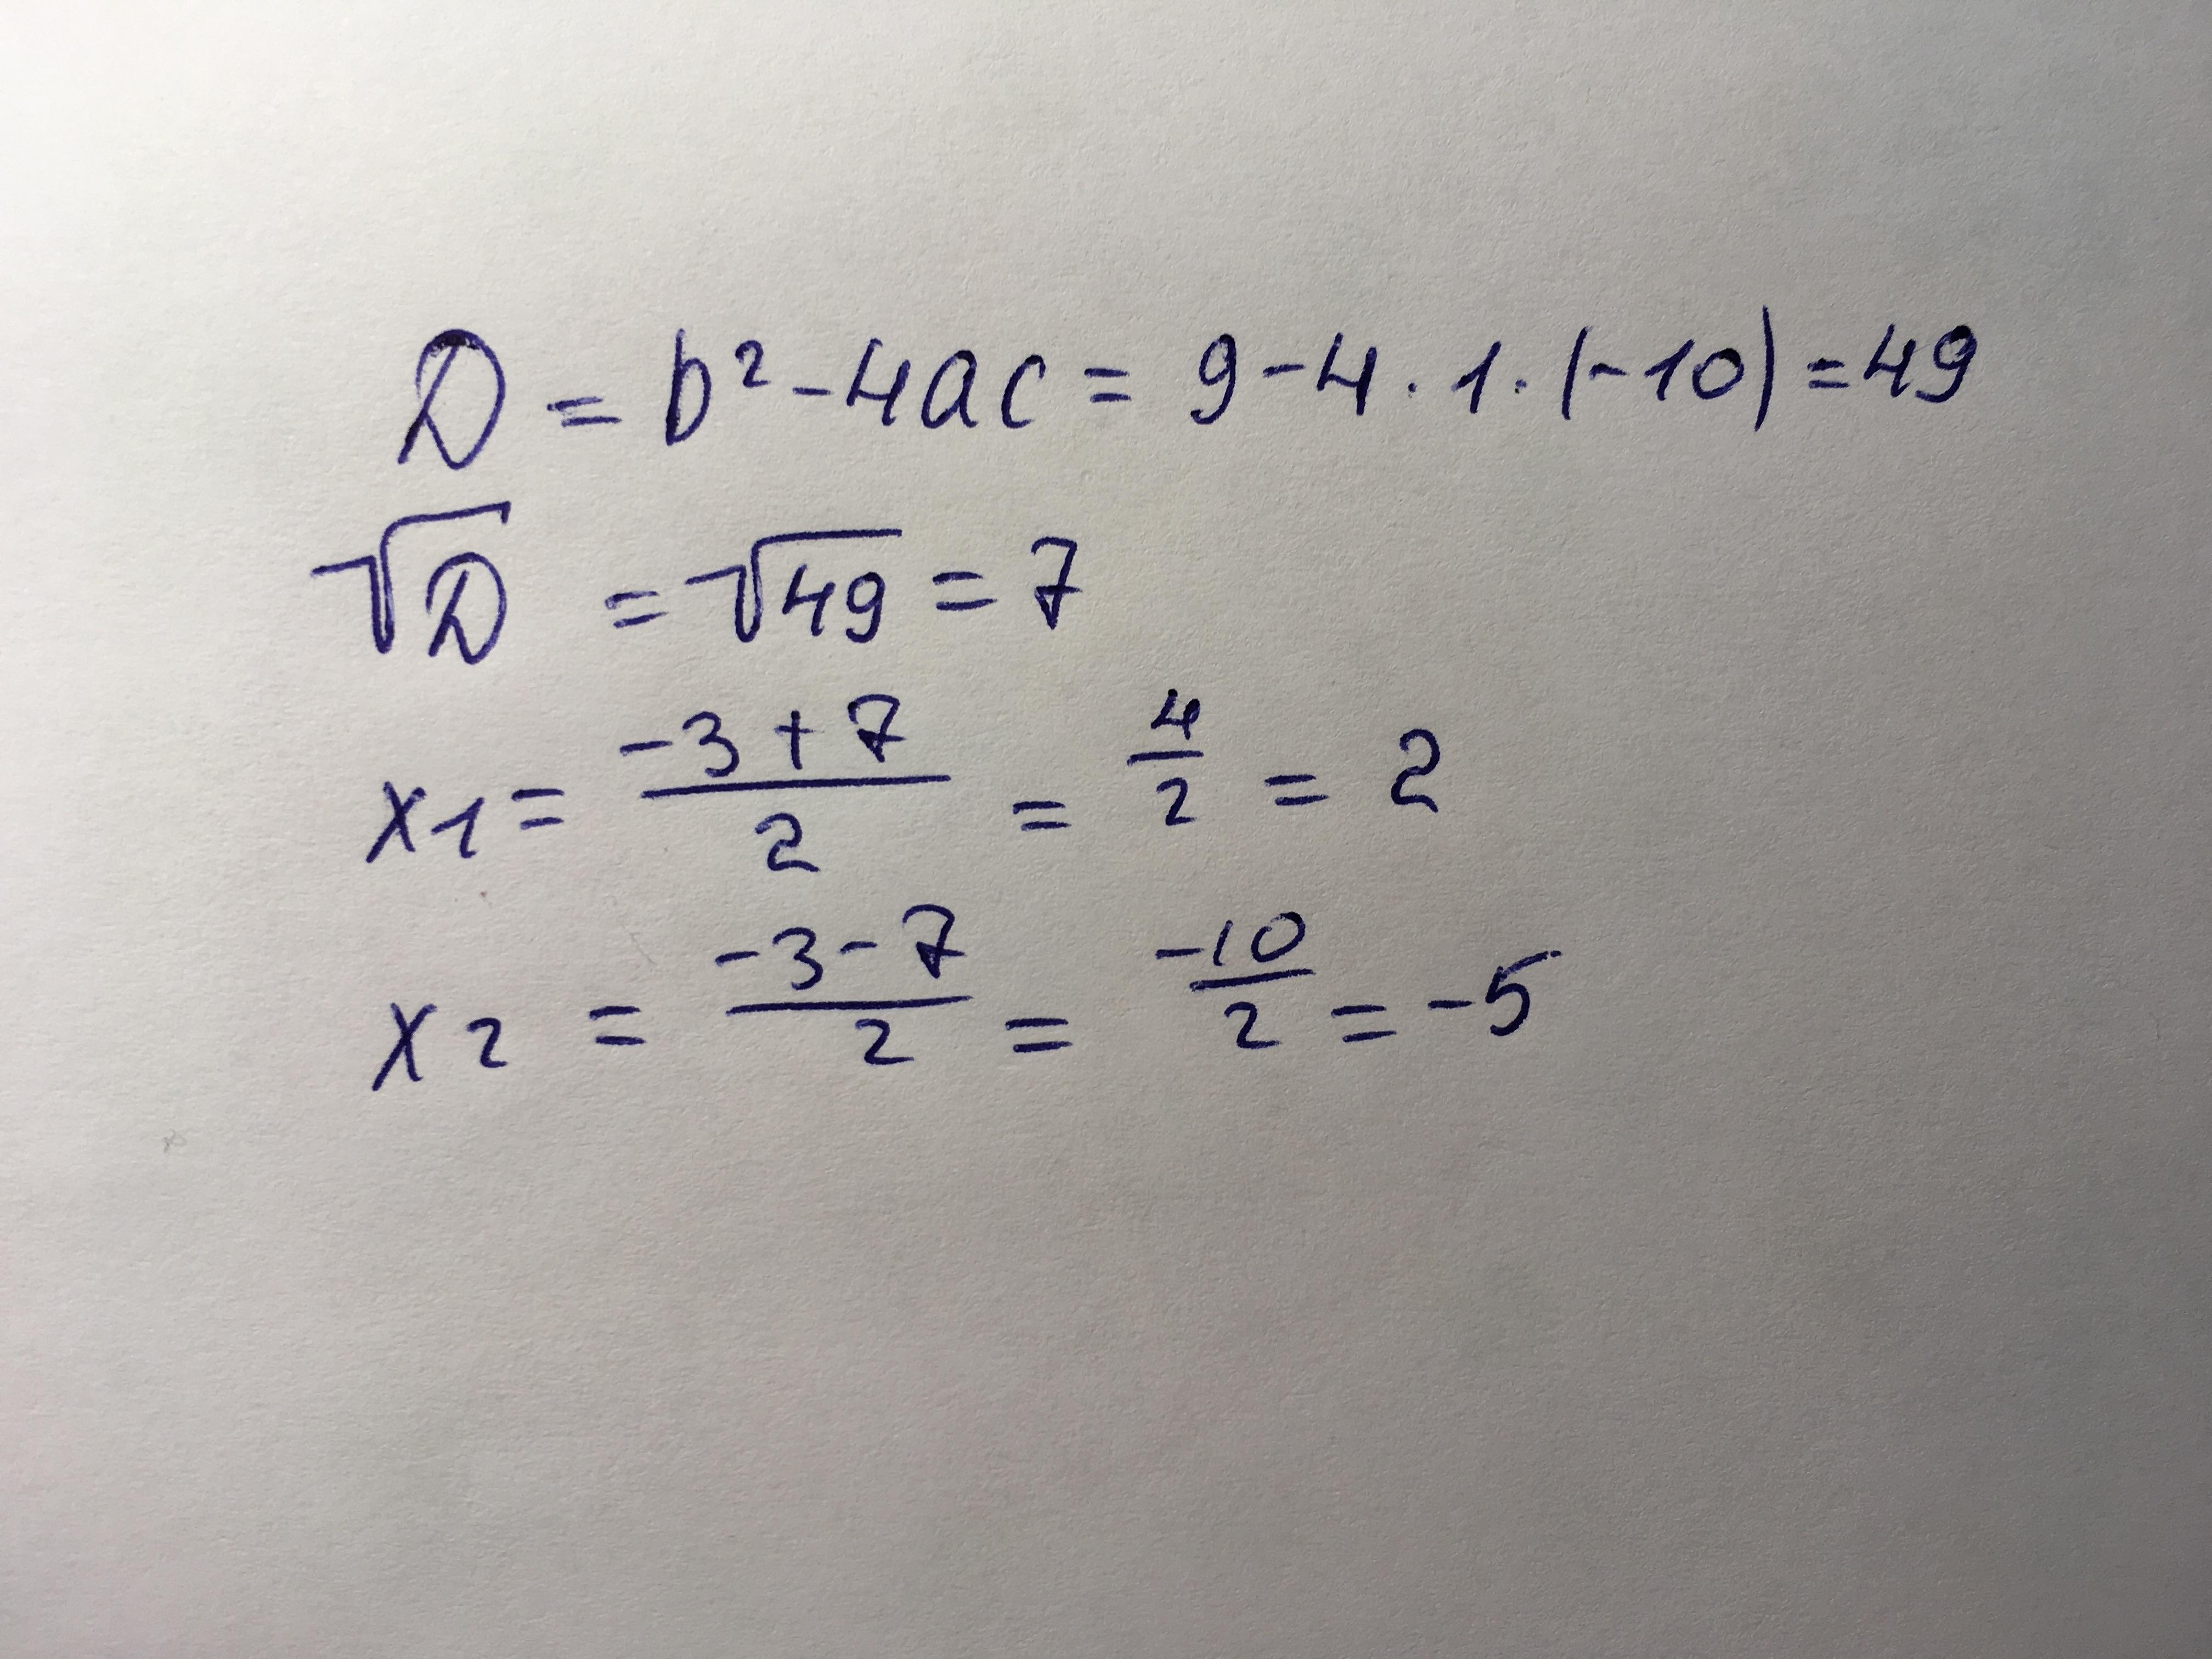 D = b² - 4ac = 9 - 4 · 1 · (-10) = 49
√D = √49 = 7
x1 = (-3 + 7)/2 = 4/2 = 2
x2 = (-3 - 7)/2 = -10/2 = -5